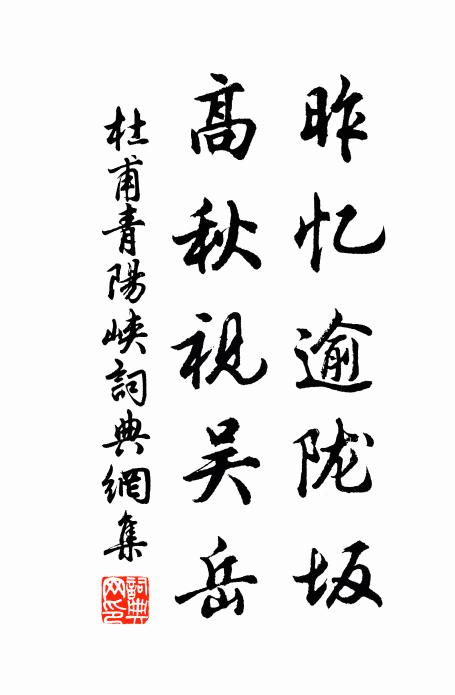 昨忆逾陇坂
高秋视吴岳
杜甫青陽峡詞典網集
詞典網印